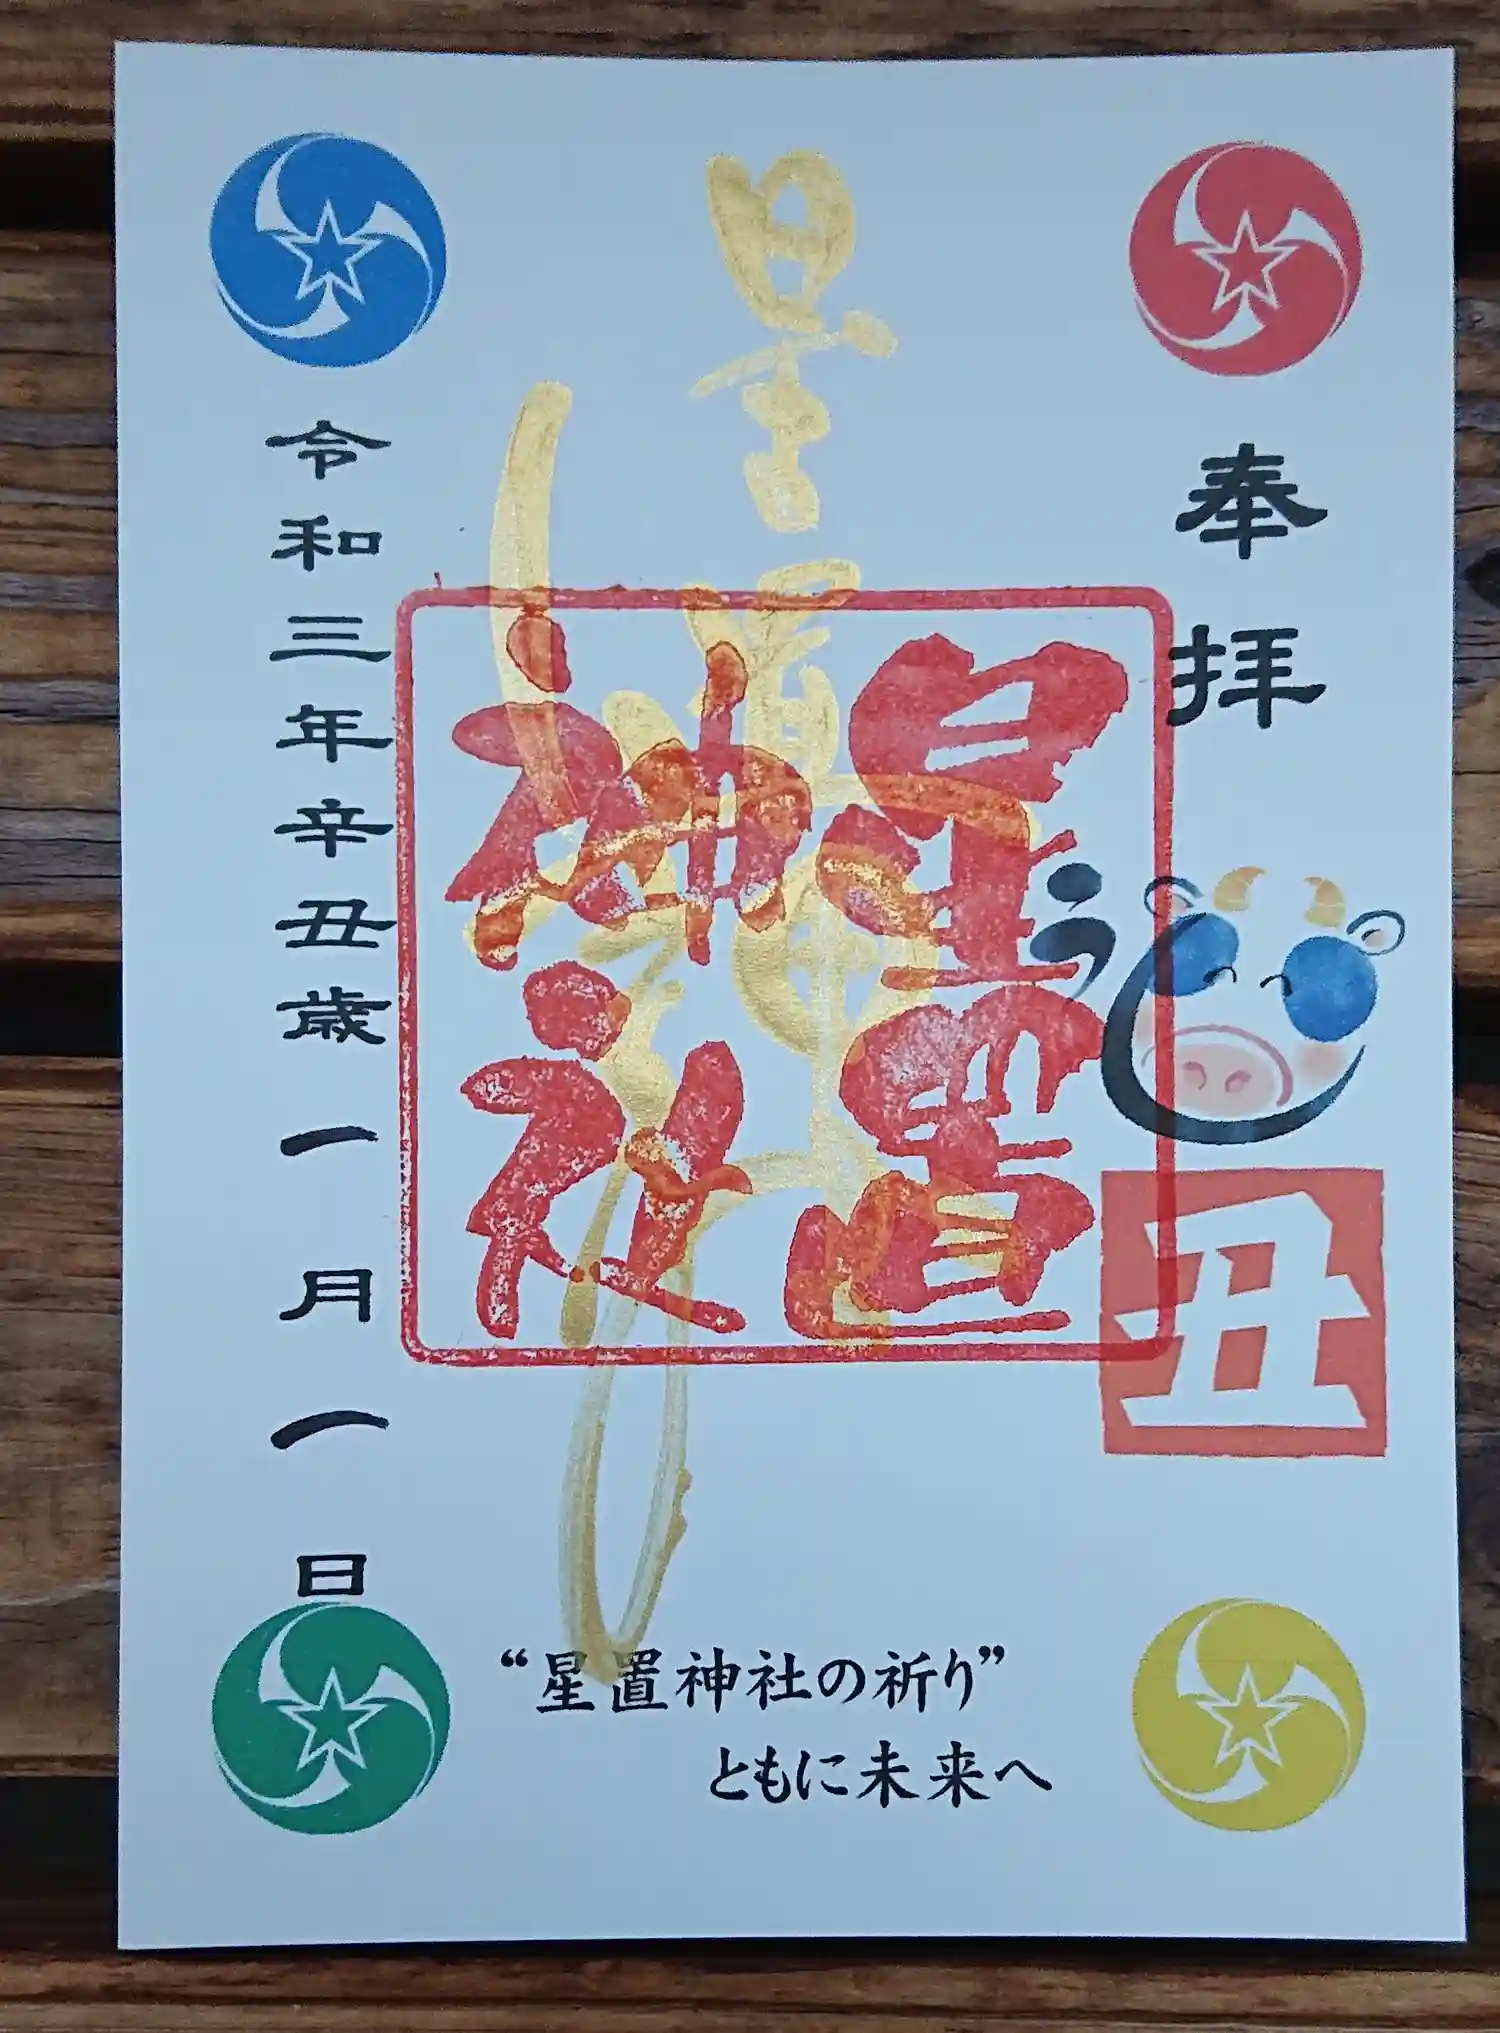 奉拝
うし
丑
星置神社
星置神社
令和三年辛丑歳一月一日
“星置神社の祈り”
ともに未来へ